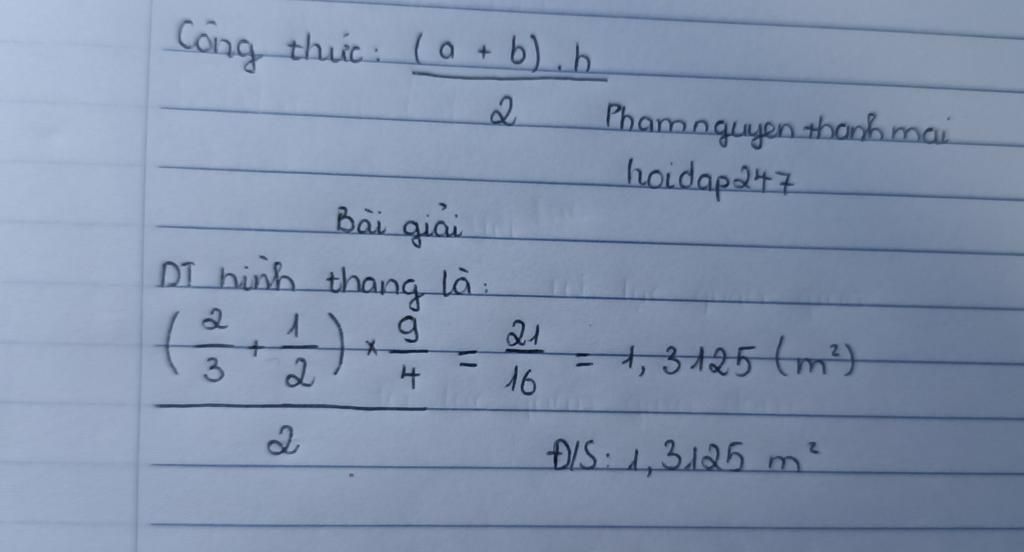 Công thức: (a + b).h
2
Phamnguyenthanhmai
hoidap247
Bài giải
DT hình thang là:
(2/3 + 1/2) × 9/4 = 21/16 = 1,3125 (m²)
2
Đ/S: 1,3125 m²